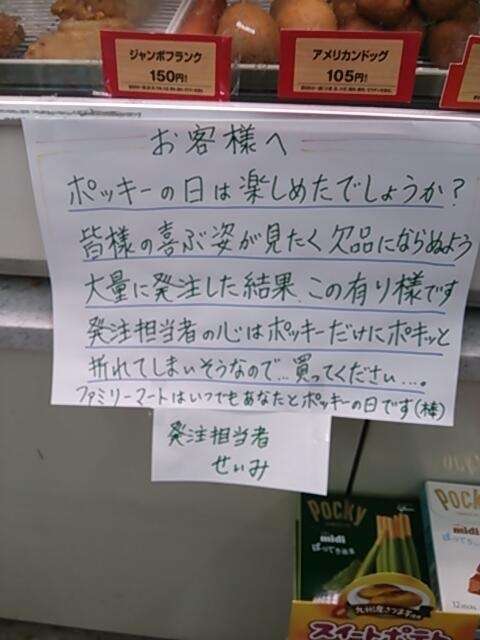 ジャンボフランク
150円!
アメリカンドッグ
105円!
お客様へ
ポッキーの日は楽しめたでしょうか?
皆様の喜ぶ姿が見たく欠品にならぬよう
大量に発注した結果、この有り様です
発注担当者の心はポッキーだけにポキッと
折れてしまいそうなので…買ってください…。
ファミリーマートはいつでもあなたとポッキーの日です(棒)
発注担当者
せいみ
POCKY
midi
POCKY
midi
九州産さつま芋使用
スイートポテト